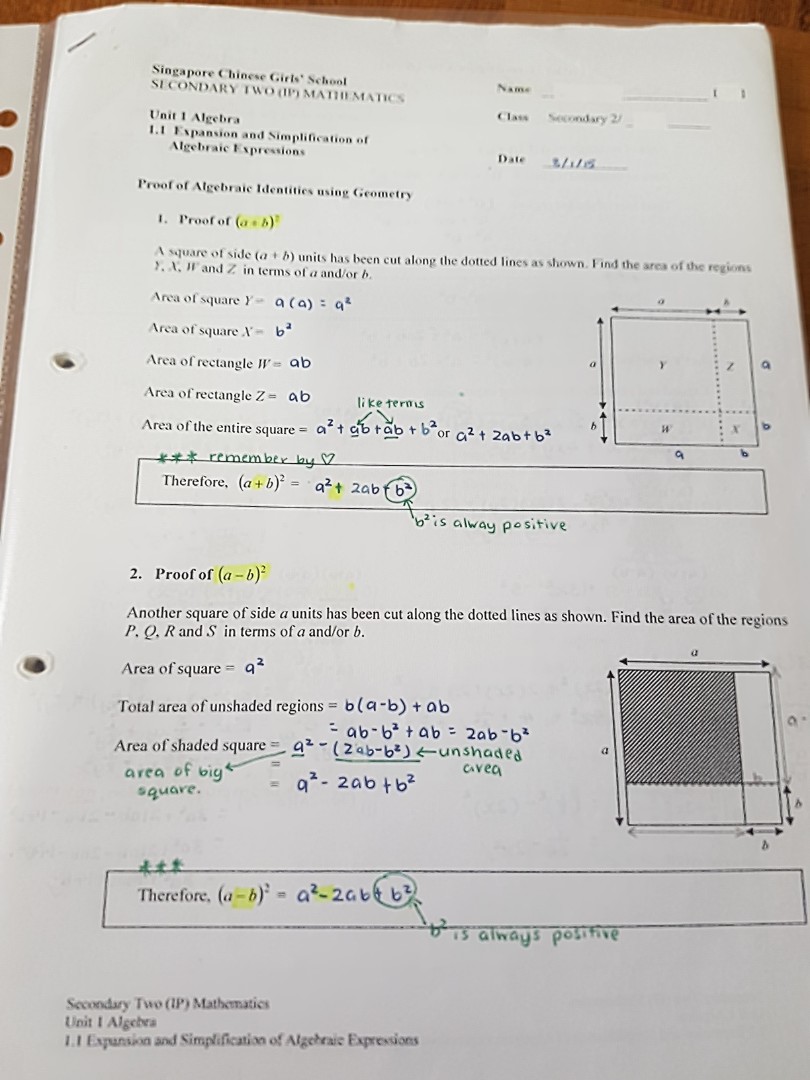 Singapore Chinese Girls' School
SECONDARY TWO (IP) MATHEMATICS
Name [ ]
Unit 1 Algebra
Class Secondary 2/
1.1 Expansion and Simplification of
Algebraic Expressions
Date 8/1/15
Proof of Algebraic Identities using Geometry
1. Proof of (a + b)²
A square of side (a + b) units has been cut along the dotted lines as shown. Find the area of the regions
Y, X, W and Z in terms of a and/or b.
Area of square Y = a(a) = a²
Area of square X = b²
Area of rectangle W = ab
Area of rectangle Z = ab
like terms
Area of the entire square = a² + ab + ab + b² or a² + 2ab + b²
a b
a Y Z a
b W X b
a b
*** remember by ♡
Therefore, (a + b)² = a² + 2ab + b²
b² is alway positive
2. Proof of (a – b)²
Another square of side a units has been cut along the dotted lines as shown. Find the area of the regions
P, Q, R and S in terms of a and/or b.
Area of square = a²
Total area of unshaded regions = b(a-b) + ab
= ab - b² + ab = 2ab - b²
Area of shaded square = a² - (2ab - b²) ← unshaded
area
area of big
square.
=
= a² - 2ab + b²
a
a a
b
b
b
***
Therefore, (a – b)² = a² - 2ab + b²
b² is always positive
Secondary Two (IP) Mathematics
Unit 1 Algebra
1.1 Expansion and Simplification of Algebraic Expressions